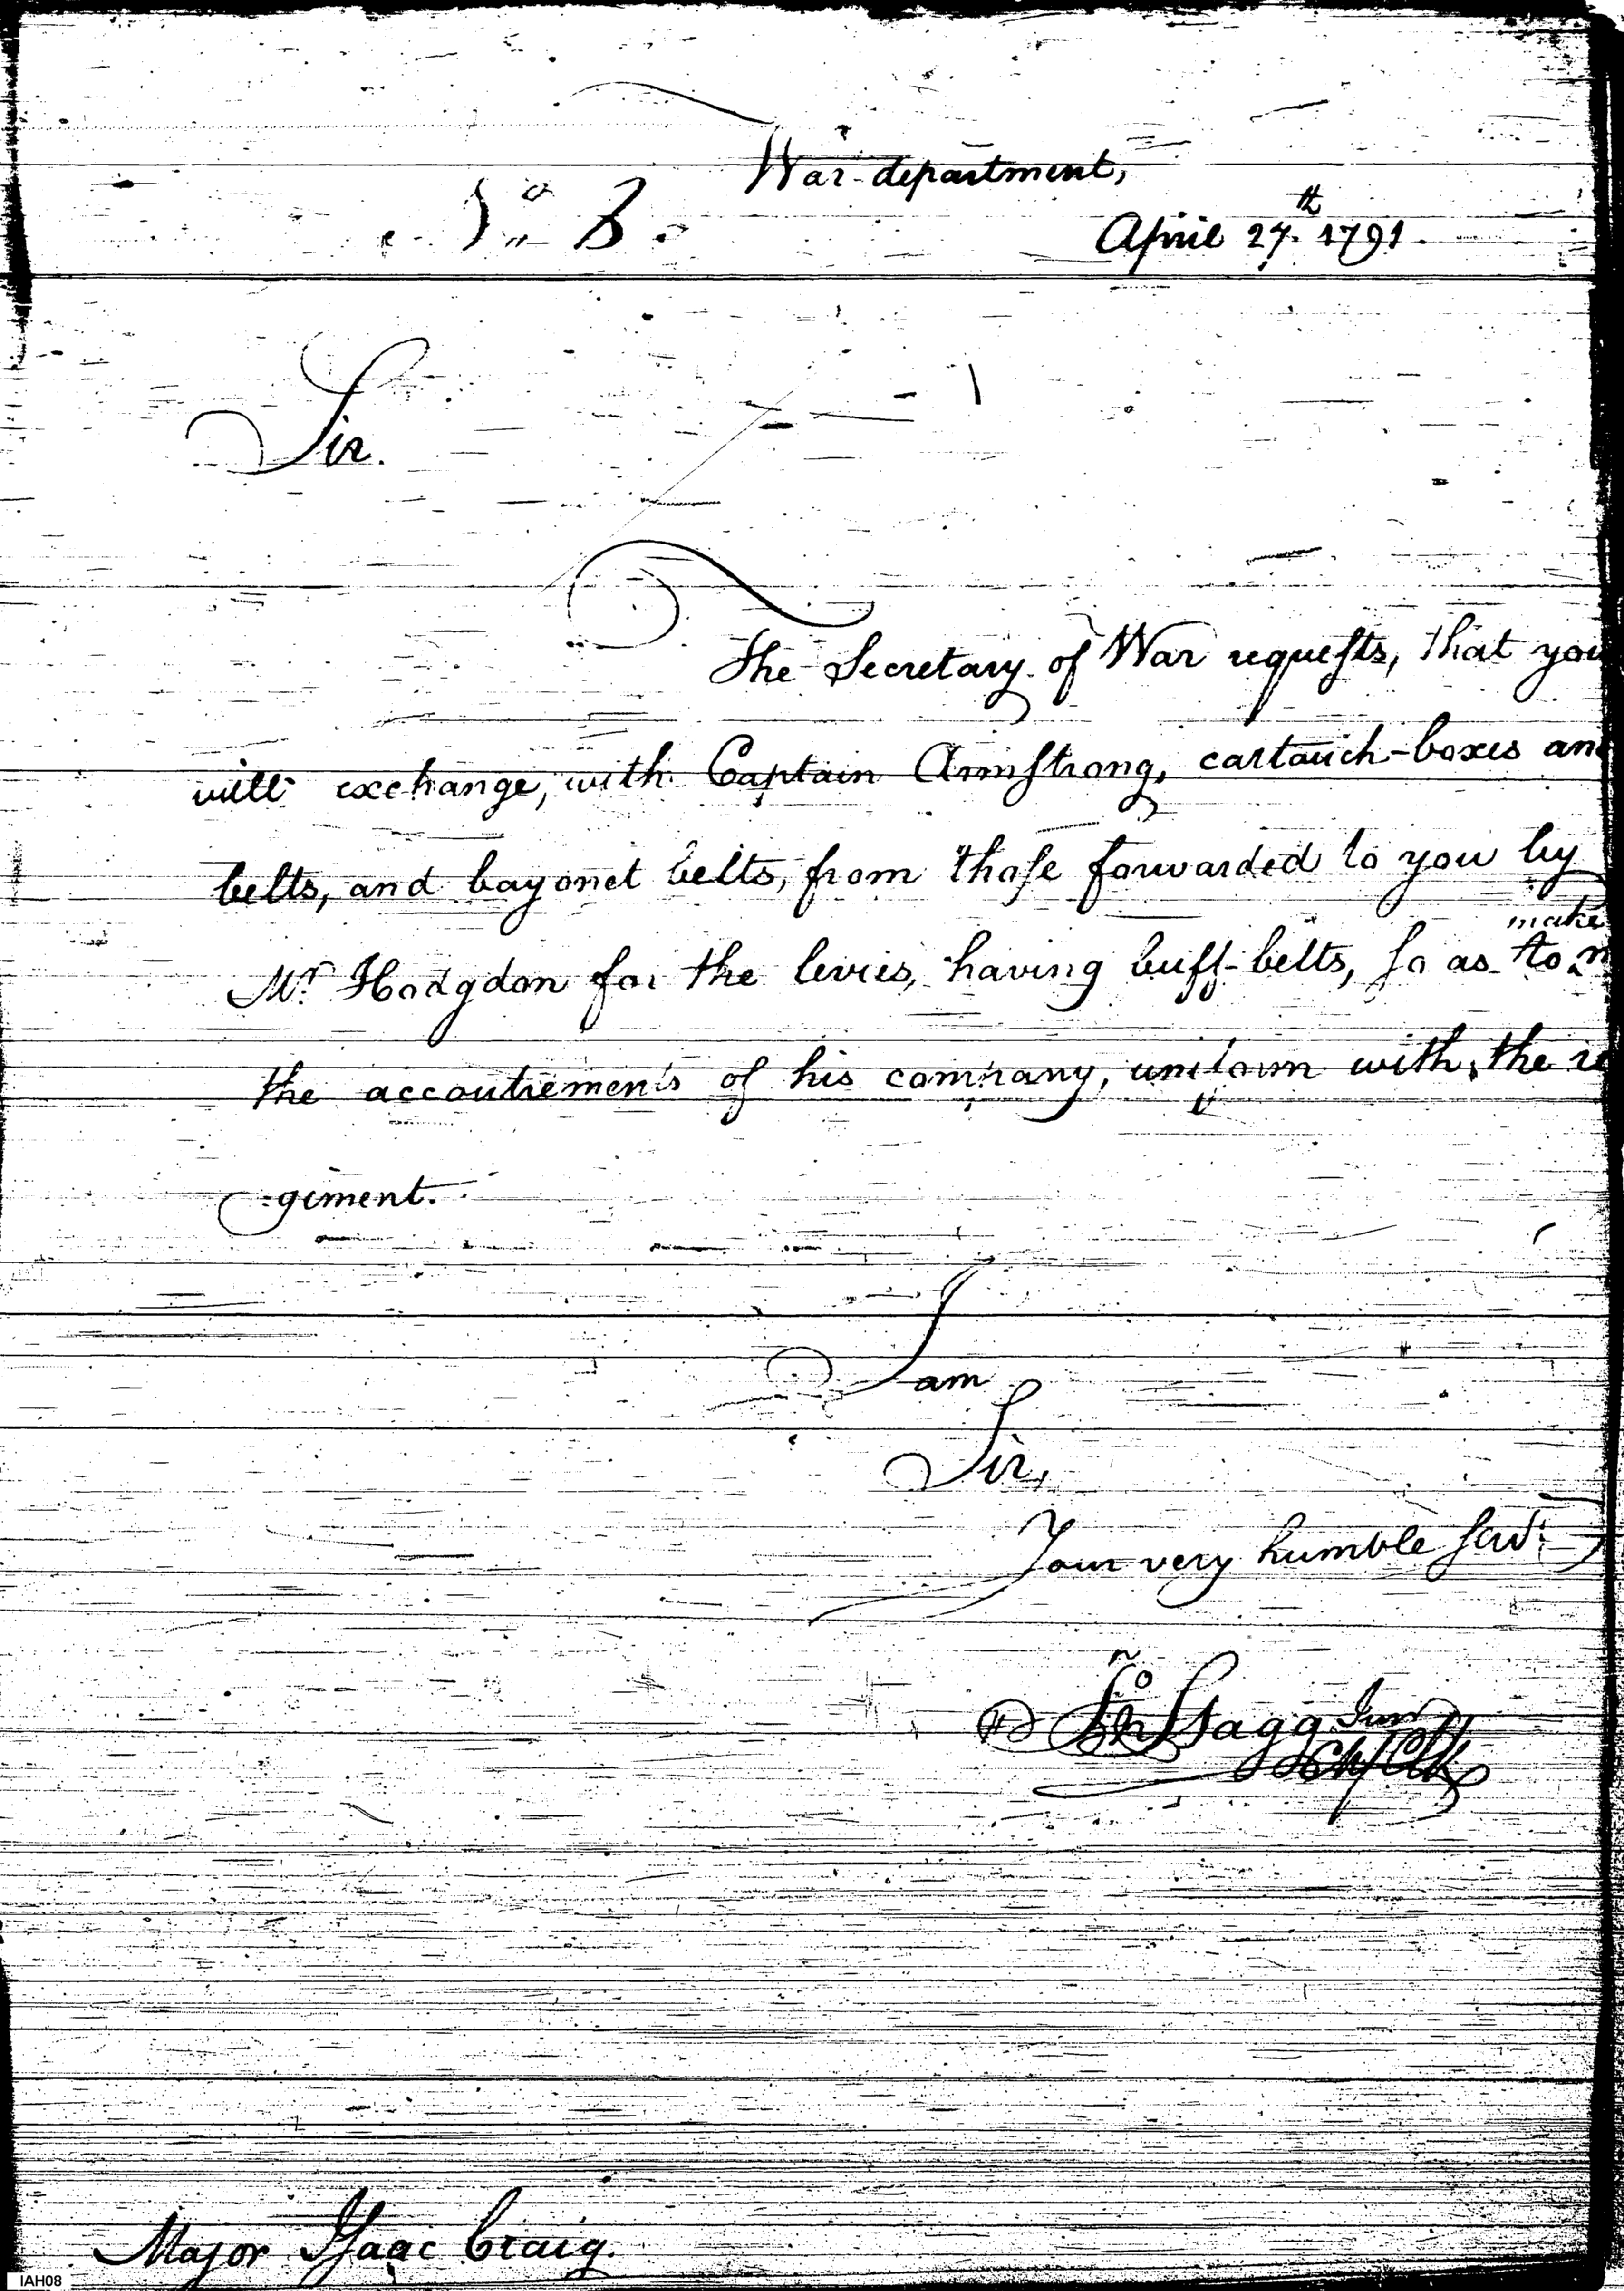 War-department,
No 3.
April 27th 1791.
Sir.
The Secretary of War requeſts, that you
will exchange, with Captain Armſtrong, cartouch-boxes and
belts, and bayonet belts, from thoſe forwarded to you by
make
Mr Hodgdon for the levies, having buff-belts, ſo as to
the accoutrements of his company, uniform with the re
-giment.
I am
Sir,
Your very humble ſervt
Jno Stagg Junr
Chf Clk
Major Iſaac Craig.
IAH08